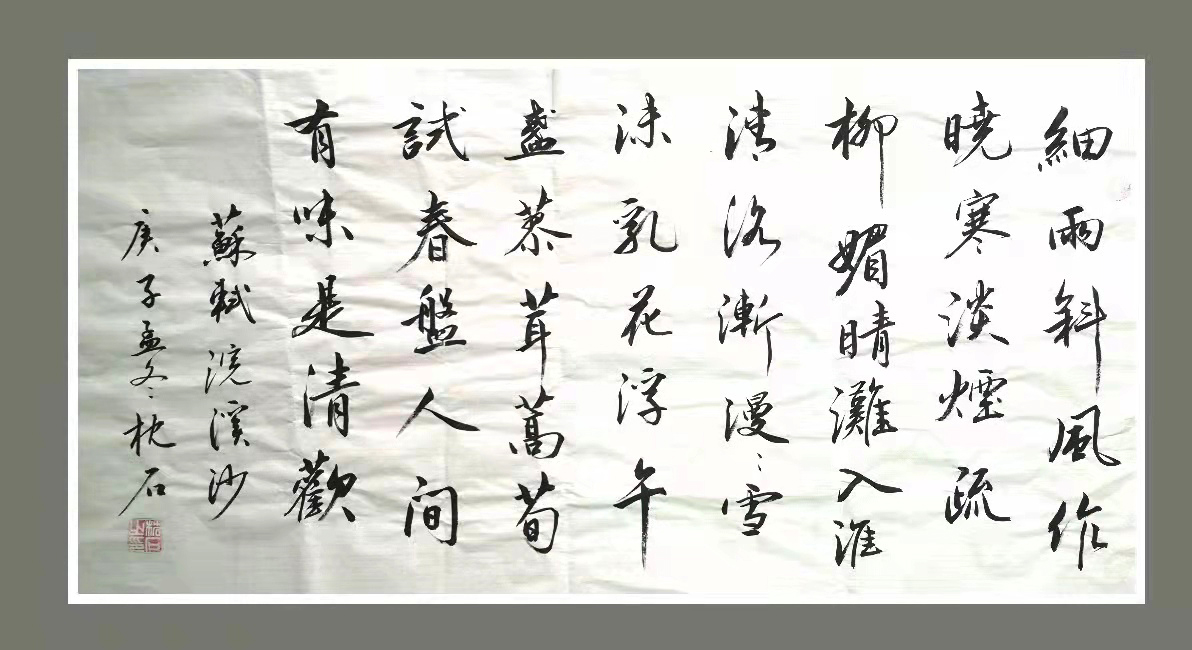 細雨斜風作
曉寒淡煙疏
柳媚晴灘入淮
清洛漸漫〻雪
沫乳花浮午
盞蓼茸蒿荀
試春盤人间
有味是清歡
蘇軾浣溪沙
庚子孟冬枕石